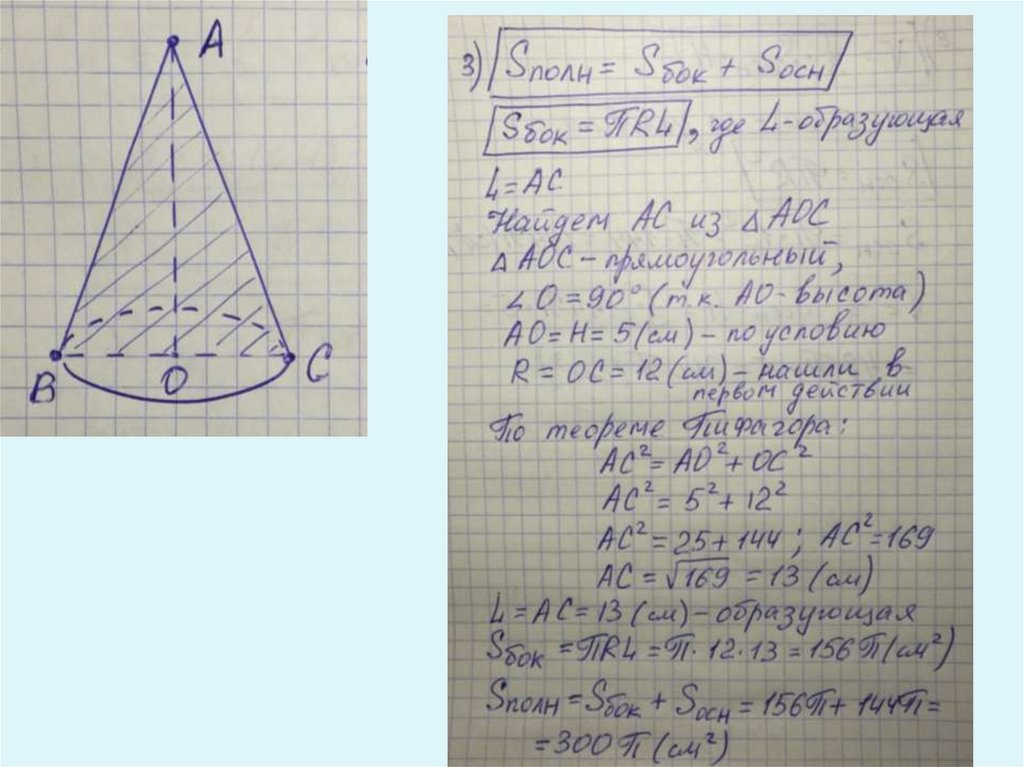 A
B
O
C
3) Sполн = Sбок + Sосн
Sбок = ПRL, где L - образующая
L = AC
Найдем AC из △AOC
△AOC - прямоугольный,
∠O = 90° (т.к. AO - высота)
AO = H = 5 (см) - по условию
R = OC = 12 (см) - нашли в
первом действии
По теореме Пифагора:
AC² = AO² + OC²
AC² = 5² + 12²
AC² = 25 + 144 ; AC² = 169
AC = √169 = 13 (см)
L = AC = 13 (см) - образующая
Sбок = ПRL = П · 12 · 13 = 156П (см²)
Sполн = Sбок + Sосн = 156П + 144П =
= 300П (см²)